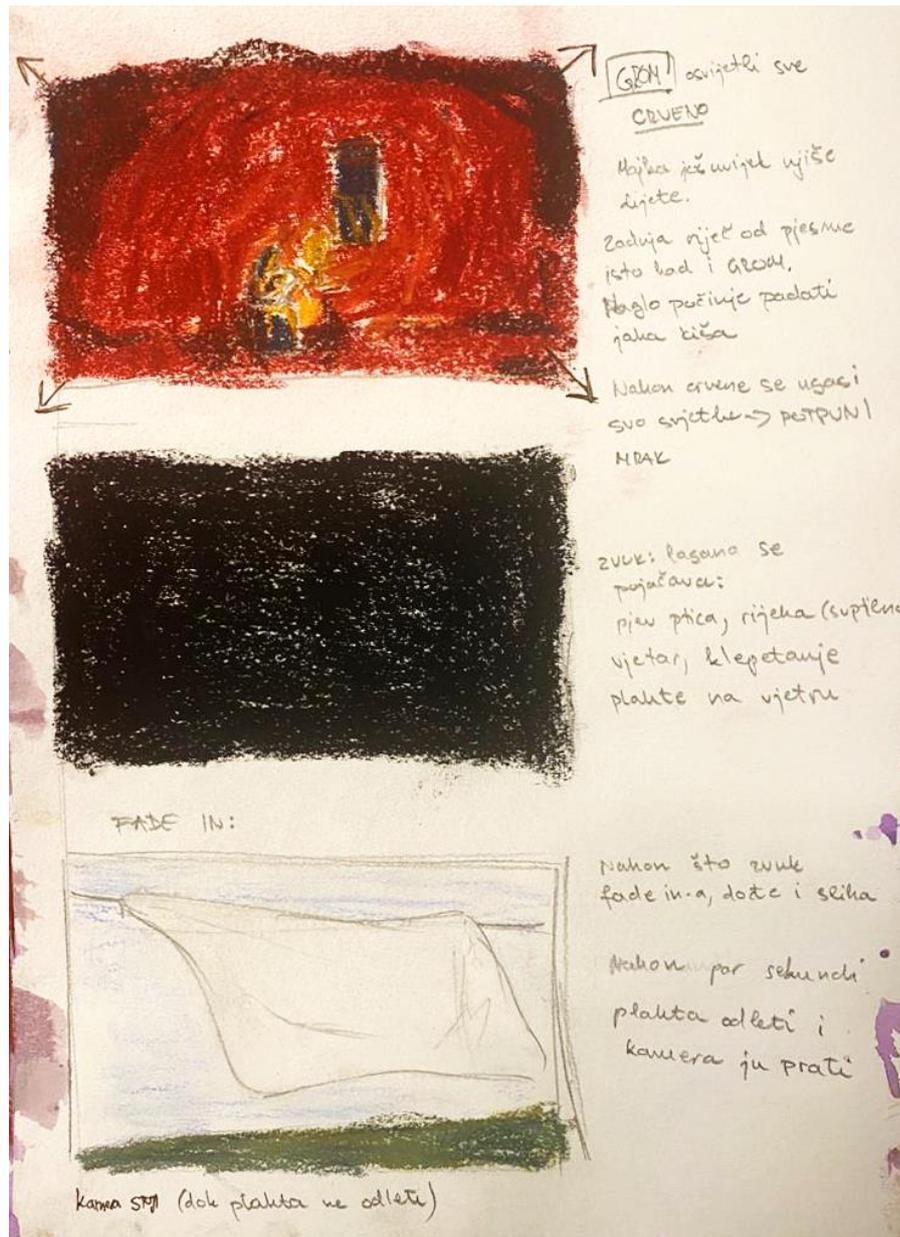 GROM osvijetli sve
CRVENO
Majka još uvijek njiše
dijete.
Zadnja riječ od pjesme
isto kad i GROM.
Naglo počinje padati
jaka kiša
Nakon crvene se ugasi
svo svjetlo → POTPUNI
MRAK
ZVUK: lagano se
pojačava:
pjev ptica, rijeka (suptilno
vjetar, klepetanje
plahte na vjetru
FADE IN:
Nakon što zvuk
fade in-a, dođe i slika
Nakon par sekundi
plahta odleti i
kamera ju prati
Kamera STOJI (dok plahta ne odleti)